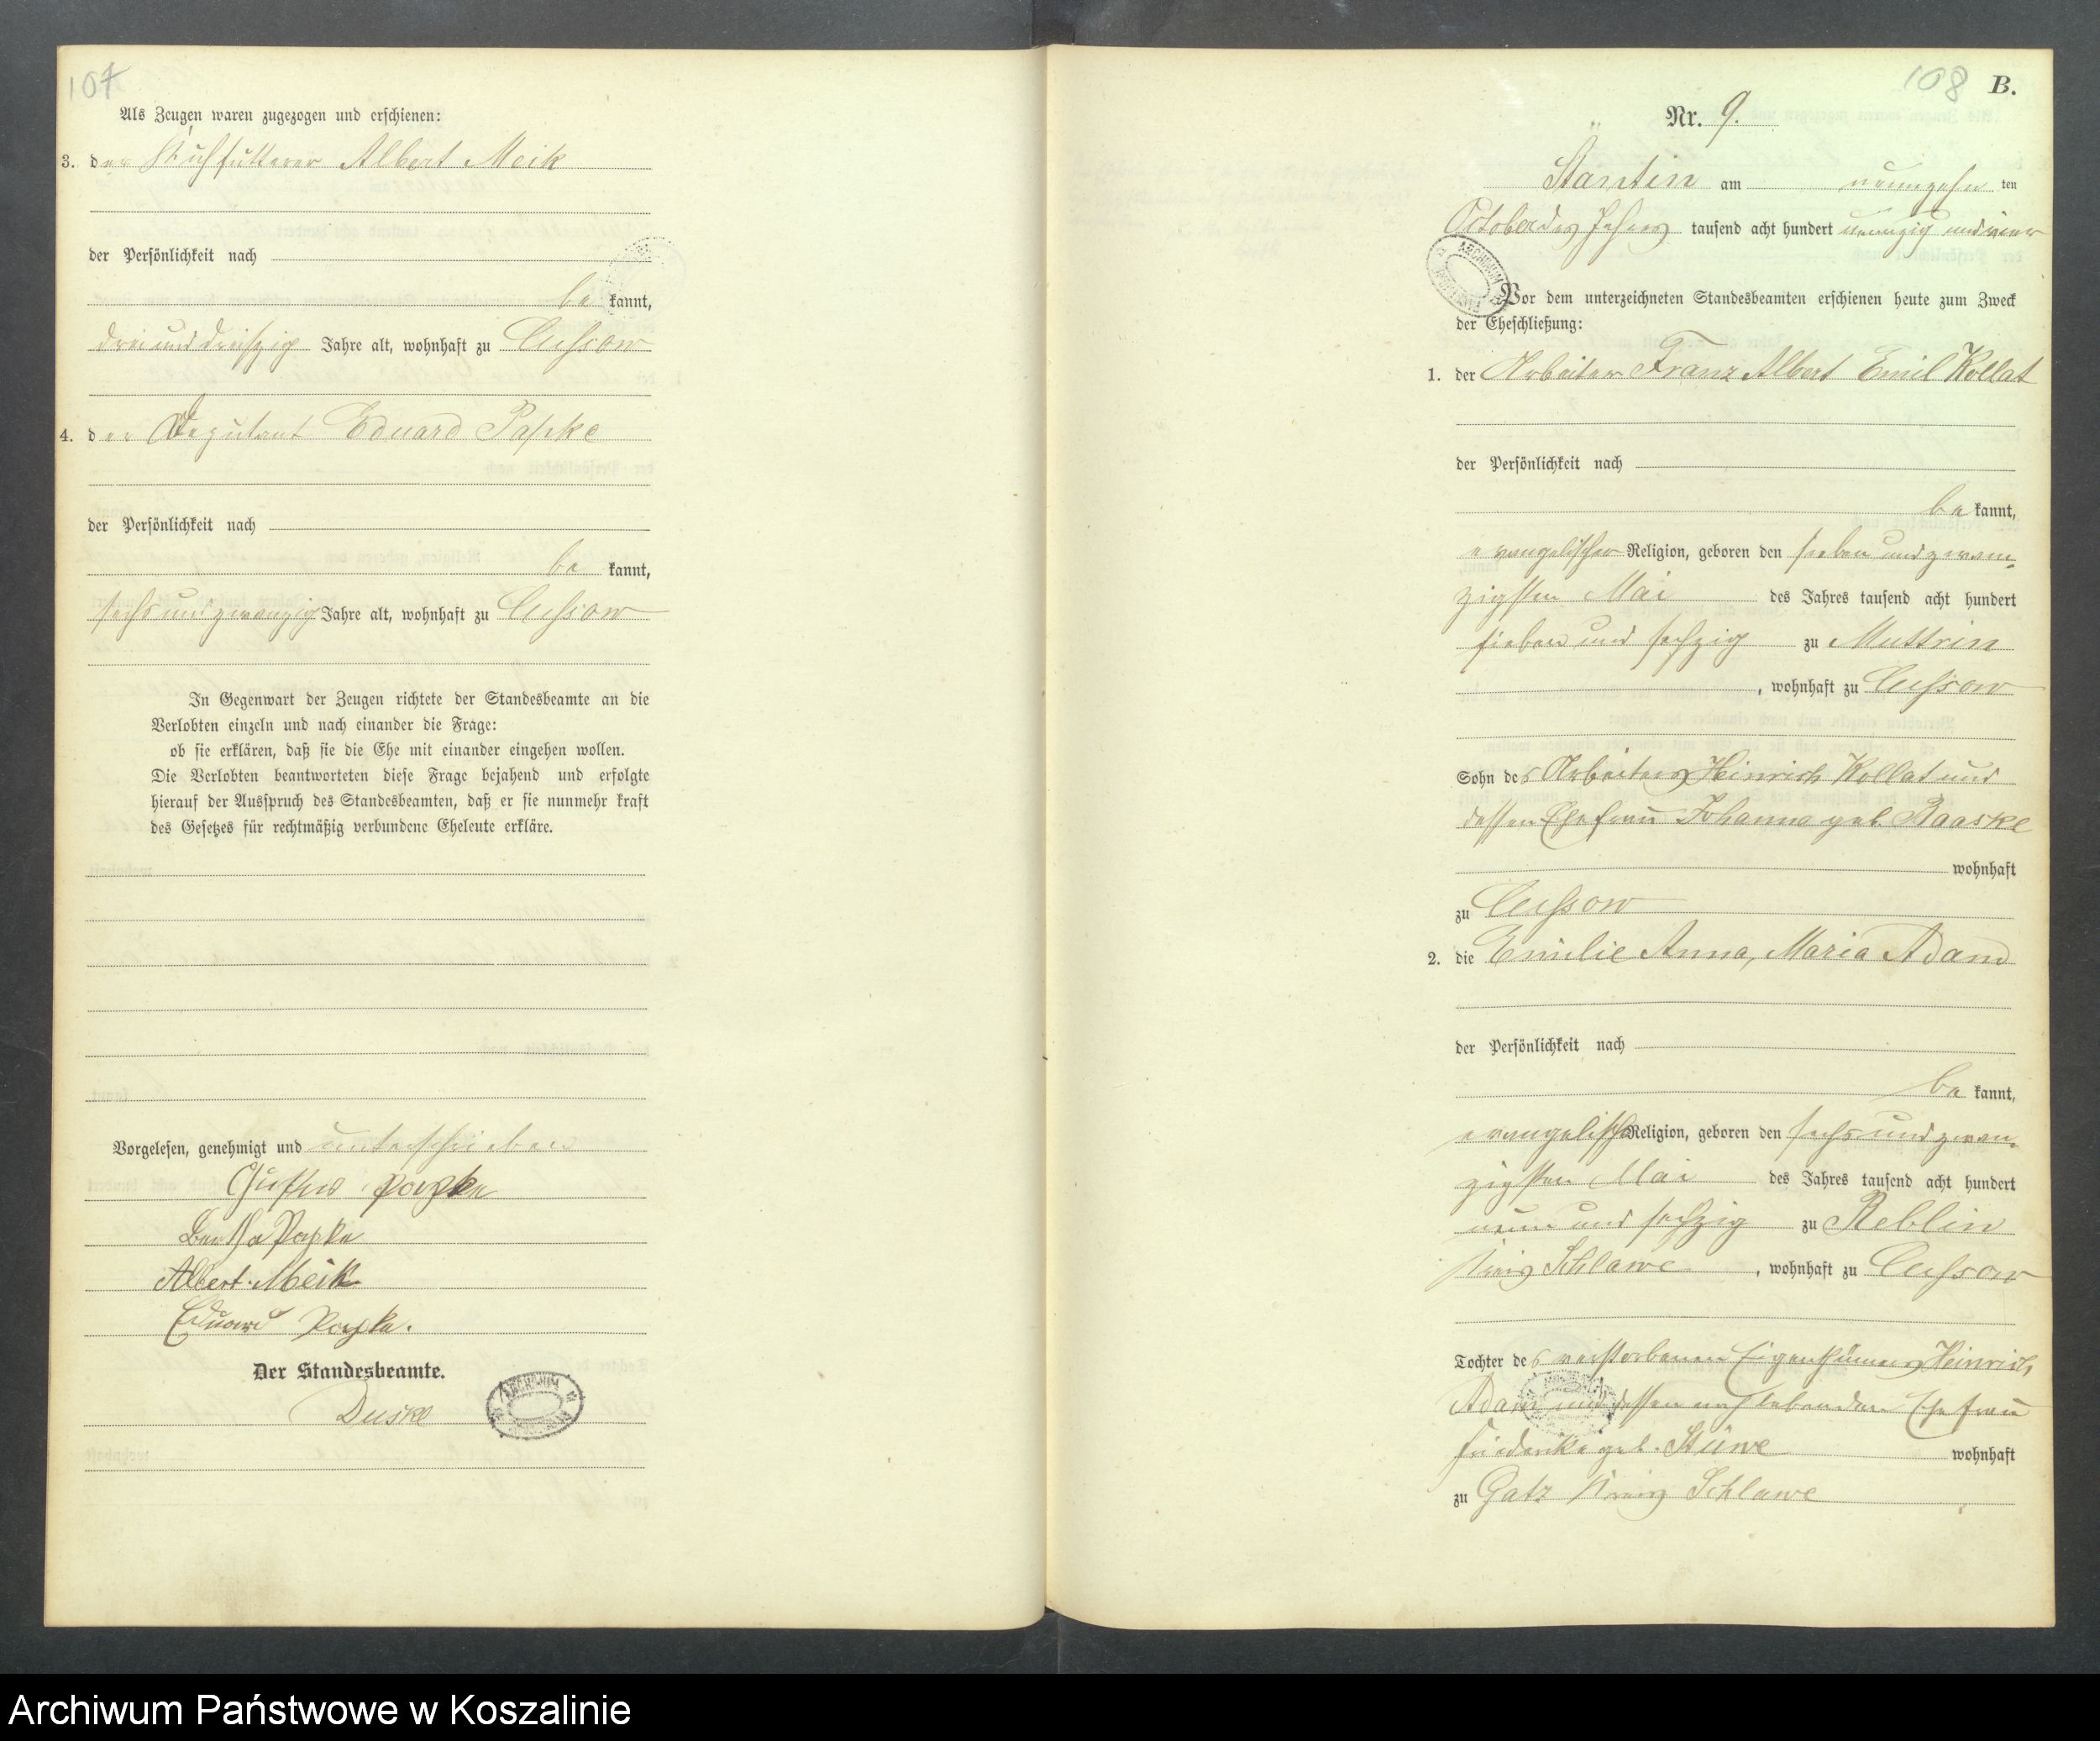 107
Als Zeugen waren zugezogen und erschienen:
3. der Kuhfutterer Albert Meik
der Persönlichkeit nach
be kannt,
drei und dreißig Jahre alt, wohnhaft zu Cussow
4. der Deputant Eduard Papke
der Persönlichkeit nach
be kannt,
sechs und zwanzig Jahre alt, wohnhaft zu Cussow
In Gegenwart der Zeugen richtete der Standesbeamte an die
Verlobten einzeln und nach einander die Frage:
ob sie erklären, daß sie die Ehe mit einander eingehen wollen.
Die Verlobten beantworteten diese Frage bejahend und erfolgte
hierauf der Ausspruch des Standesbeamten, daß er sie nunmehr kraft
des Gesetzes für rechtmäßig verbundene Eheleute erkläre.
Vorgelesen, genehmigt und unterschrieben
Gustav Papke
Bertha Papke
Albert Meik
Eduard Papke.
Der Standesbeamte.
Duske
108 B.
Nr. 9.
Stantin am neunzehn ten
October des Jahres tausend acht hundert neunzig und vier
Vor dem unterzeichneten Standesbeamten erschienen heute zum Zweck
der Eheschließung:
1. der Arbeiter Franz Albert Emil Kollat
der Persönlichkeit nach
be kannt,
evangelischer Religion, geboren den sieben und zwan-
zigsten Mai des Jahres tausend acht hundert
sieben und sechzig zu Muttrin
, wohnhaft zu Cussow
Sohn des Arbeiters Heinrich Kollat und
dessen Ehefrau Johanna geb. Raaske
wohnhaft
zu Cussow
2. die Emilie Anna, Maria Adam
der Persönlichkeit nach
be kannt,
evangelischer Religion, geboren den sechs und zwan-
zigsten Mai des Jahres tausend acht hundert
neun und sechzig zu Reblin
Kreis Schlawe, wohnhaft zu Cussow
Tochter des verstorbenen Eigenthümers Heinrich
Adam und dessen noch lebenden Ehefrau
Friederike geb. Stüwe wohnhaft
zu Gatz Kreis Schlawe
Archiwum Państwowe w Koszalinie